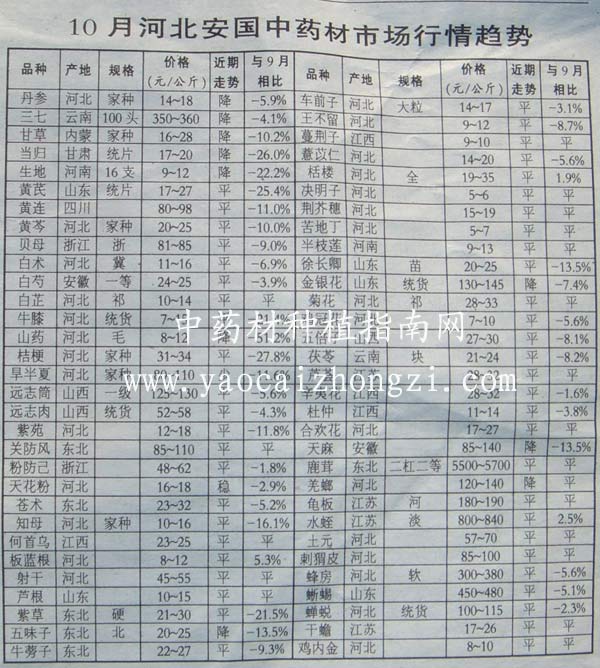 10月河北安国中药材市场行情趋势
品种 产地 规格 价格(元/公斤) 近期走势 与9月相比 品种 产地 规格 价格(元/公斤) 近期走势 与9月相比
丹参 河北 家种 14~18 降 -5.9% 车前子 河北 大粒 14~17 平 -3.1%
三七 云南 100头 350~360 降 -4.1% 王不留 河北 9~12 平 -8.7%
甘草 内蒙 家种 16~28 降 -10.2% 蔓荆子 江西 9~10 平 平
当归 甘肃 统片 17~20 降 -26.0% 薏苡仁 河北 14~20 平 -5.6%
生地 河南 16支 9~12 降 -22.2% 栝楼 河北 全 19~35 平 1.9%
黄芪 山东 统片 17~27 平 -25.4% 决明子 河北 5~6 平 平
黄连 四川 80~98 平 -11.0% 荆芥穗 河北 15~19 平 平
黄芩 河北 家种 20~25 平 -10.0% 苦地丁 河北 5~7 平 平
贝母 浙江 浙 81~85 平 -9.0% 半枝莲 河南 9~13 平 平
白术 河北 冀 11~16 平 -6.9% 徐长卿 山东 苗 20~25 平 -13.5%
白芍 安徽 一等 24~25 平 -3.9% 金银花 山东 统货 130~145 降 -7.4%
白芷 河北 祁 10~14 平 平 菊花 河北 祁 28~33 平 平
牛膝 河北 统货 河北 7~10 平 -5.6%
山药 河北 毛 8~12 降 -51.2% 山西 27~30 平 -8.1%
桔梗 河北 家种 31~34 平 -27.8% 茯苓 云南 块 21~24 平 -8.2%
旱半夏 河北 家种 平 江西 平 平
远志筒 山西 一级 125~130 平 -5.6% 辛夷花 江西 28~32 平 -1.6%
远志肉 山西 统货 52~58 平 -4.3% 杜仲 江西 11~14 平 -3.8%
紫菀 河北 12~18 平 -11.8% 合欢花 河北 17~27 平 平
关防风 东北 85~110 平 平 天麻 安徽 85~140 降 -13.5%
粉防己 浙江 48~62 平 -1.8% 鹿茸 东北 二杠二等 5500~5700 平 平
天花粉 河北 16~18 稳 -2.9% 羌螂 河北 120~140 降 平
苍术 东北 23~32 平 -5.2% 龟板 江苏 河 180~190 平 平
知母 河北 家种 10~16 平 -16.1% 水蛭 江苏 淡 800~840 平 2.5%
何首乌 江西 23~25 平 平 土元 河北 57~70 平 平
板蓝根 河北 8~12 平 5.3% 刺猬皮 河北 85~100 平 平
射干 河北 45~55 平 平 蜂房 河北 软 300~380 平 -5.6%
芦根 山东 10~15 平 平 蜥蜴 山东 450~480 平 -5.1%
紫草 东北 硬 21~30 平 -21.5% 蝉蜕 河北 统货 100~115 平 -2.3%
五味子 东北 北 20~25 降 -13.5% 干蟾 江苏 17~26 平 平
牛蒡子 东北 22~27 平 -9.3% 鸡内金 河北 8~10 平 平
中药材种植指南网
www.yaocaizhongzi.com